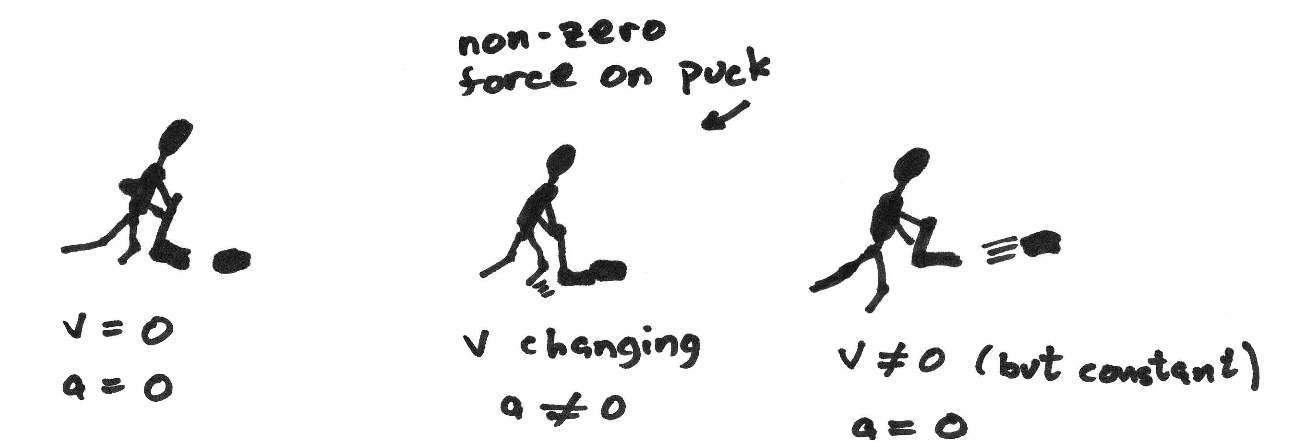 non-zero
force on puck
v = 0
a = 0
v changing
a ≠ 0
v ≠ 0 (but constant)
a = 0